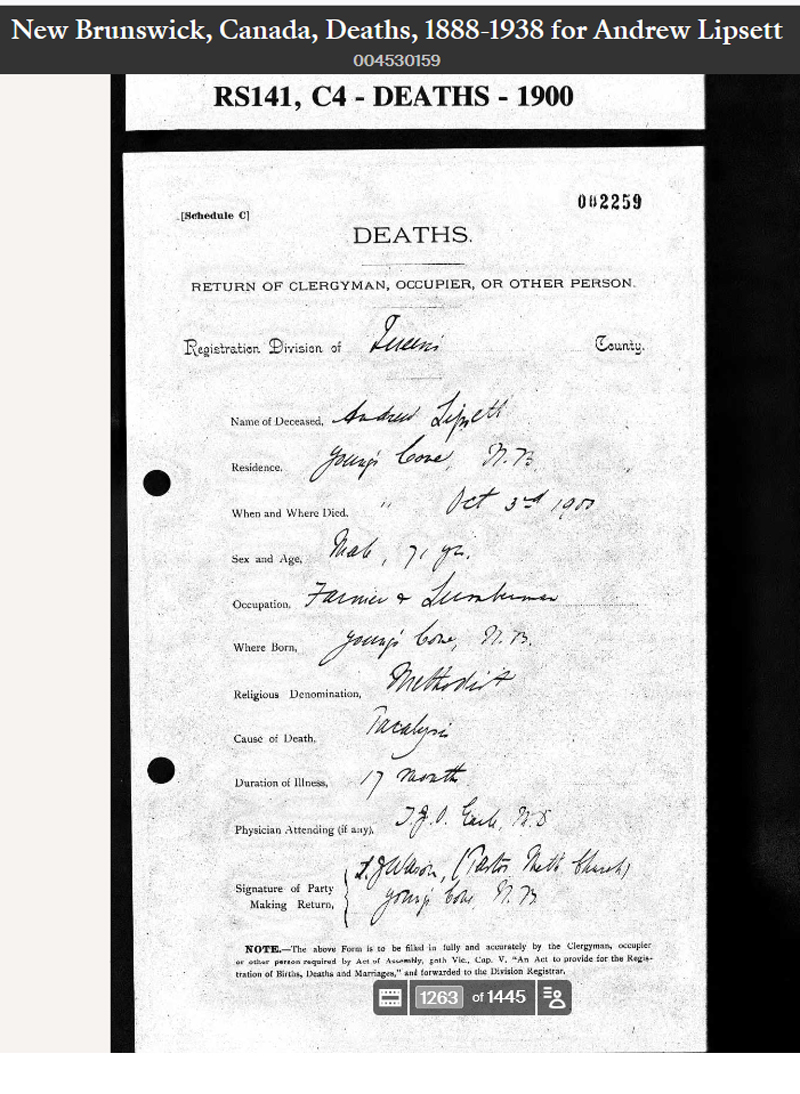 New Brunswick, Canada, Deaths, 1888-1938 for Andrew Lipsett
004530159
RS141, C4 - DEATHS - 1900
002259
[Schedule C]
DEATHS.
RETURN OF CLERGYMAN, OCCUPIER, OR OTHER PERSON.
Registration Division of Queens County.
Name of Deceased, Andrew Lipsett
Residence, Young's Cove, N.B.
When and Where Died, " Oct 3rd 1900
Sex and Age, Male, 71 yrs.
Occupation, Farmer & Lumberman
Where Born, Young's Cove, N.B.
Religious Denomination, Methodist
Cause of Death, Paralysis
Duration of Illness, 17 months
Physician Attending (if any), Earle, M.D
(Pastor Meth Church)
Signature of Party
Young's Cove, N.B
Making Return,
NOTE.—The above Form is to be filled in fully and accurately by the Clergyman, occupier
or other person required by Act of Assembly, 50th Vic., Cap. V, "An Act to provide for the Regis-
tration of Births, Deaths and Marriages," and forwarded to the Division Registrar.
1263 of 1445